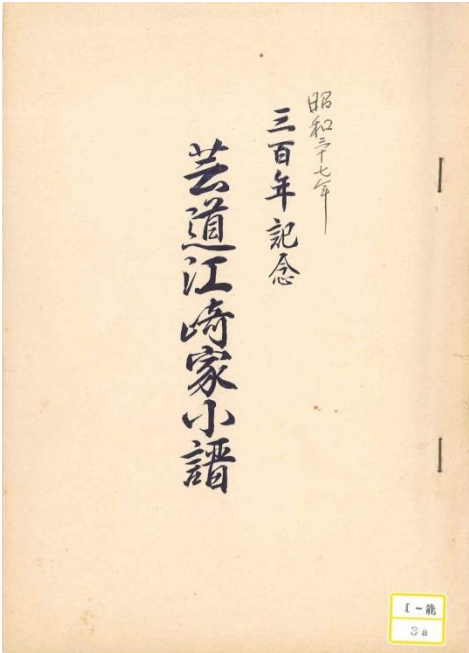 昭和三十七年
三百年記念
芸道江崎家小譜
I-能
3a